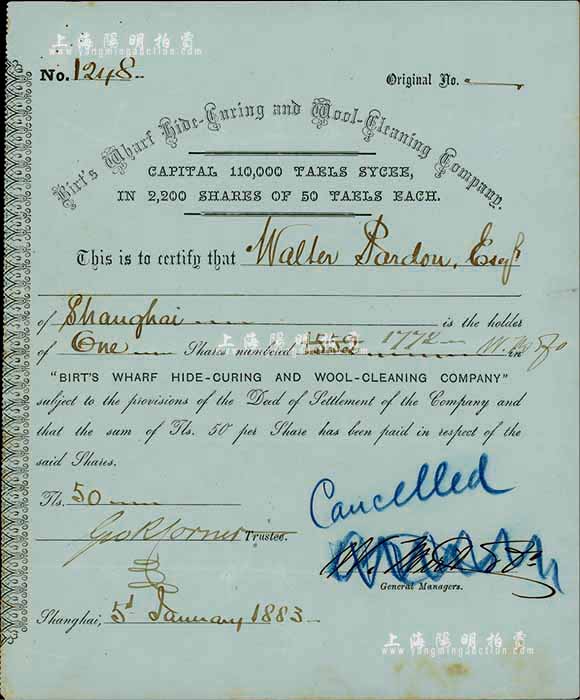 上海陽明拍賣
www.yangmingauction.com
No. 1248
Original No.
Birt's Wharf Hide-Curing and Wool-Cleaning Company.
CAPITAL 110,000 TAELS SYCEE,
IN 2,200 SHARES OF 50 TAELS EACH.
This is to certify that Walter Pardon, Esqr
of Shanghai is the holder
of One Shares numbered 1552 1772 in
上海陽明拍賣
www.yangmingauction.com
"BIRT'S WHARF HIDE-CURING AND WOOL-CLEANING COMPANY"
subject to the provisions of the Deed of Settlement of the Company and
that the sum of Tls. 50 per Share has been paid in respect of the
said Shares.
Tls. 50
Cancelled
Geo R Corner Trustee.
General Managers.
Shanghai, 5th January 1883
上海陽明拍賣
www.yangmingauction.com